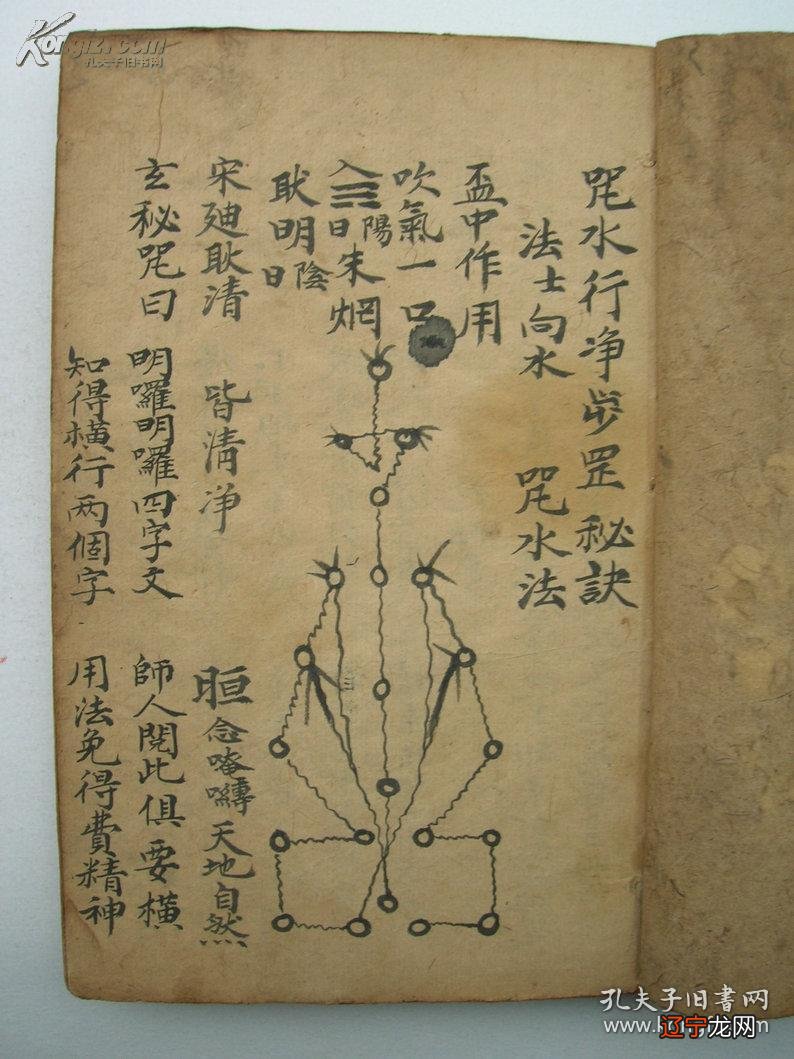 咒水行净步罡秘訣
法士向水 咒水法
盃中作用
吹氣一口
入☰陽日朱烱
耿明陰日
宋廸耿清 皆清净 㫜念唵囀天地自然
玄秘咒曰 明囉明囉四字文 師人閱此俱要横
知得横行两個字 用法免得費精神
Kongfz.com
孔夫子旧书网
孔夫子旧书网
www.kongfz.com
辽宁龙网